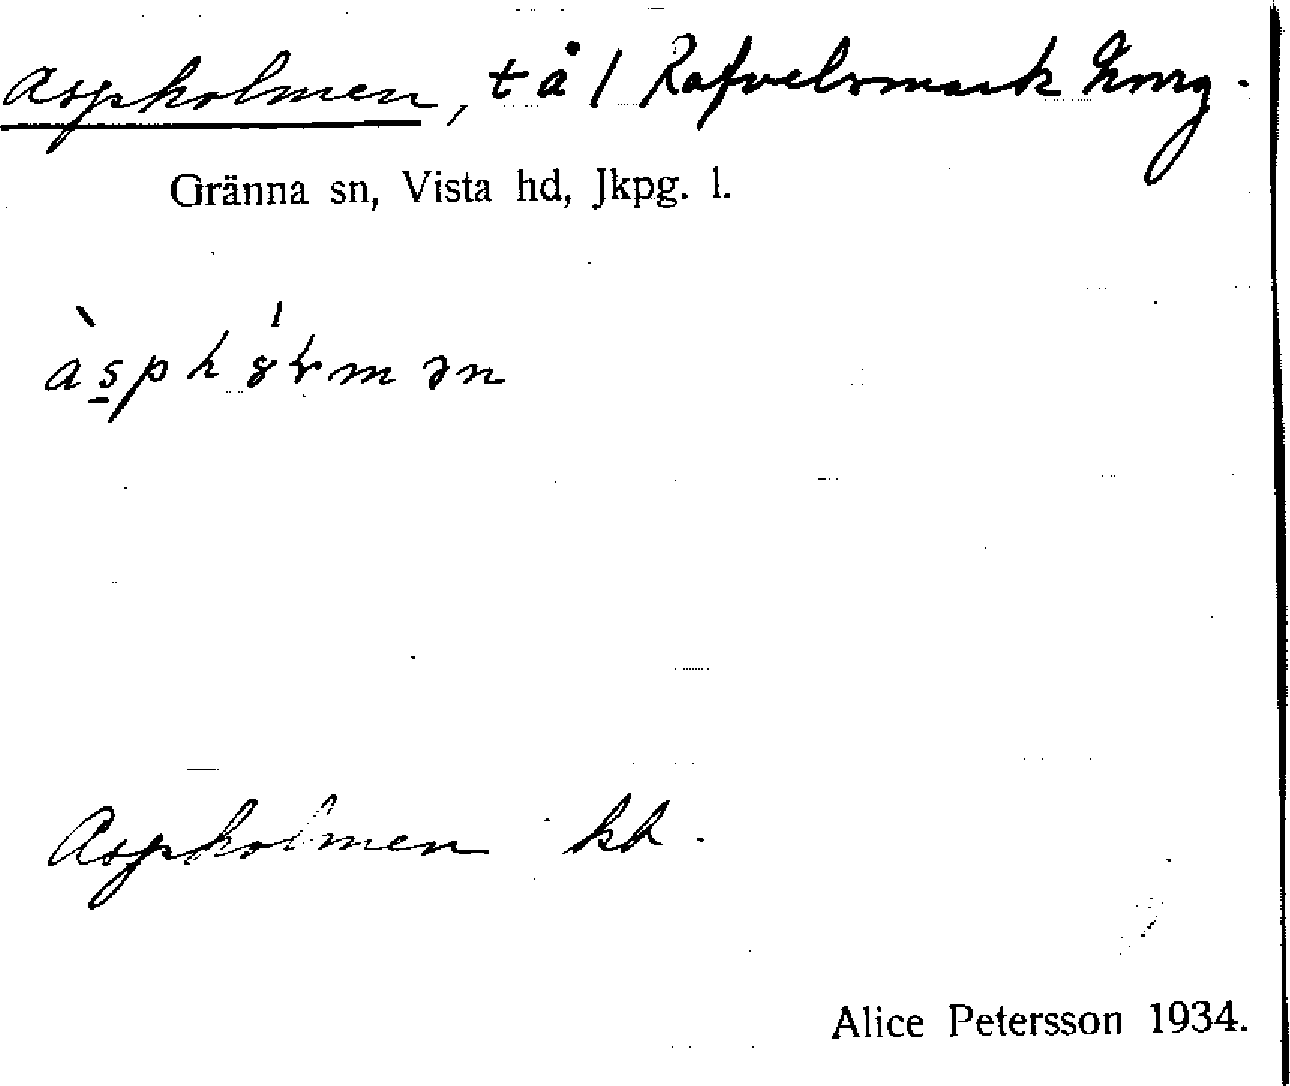 Aspholmen, tå / Rafvelsmark
Gränna sn, Vista hd, Jkpg. l.
Aspholmen kh.
Alice Petersson 1934.